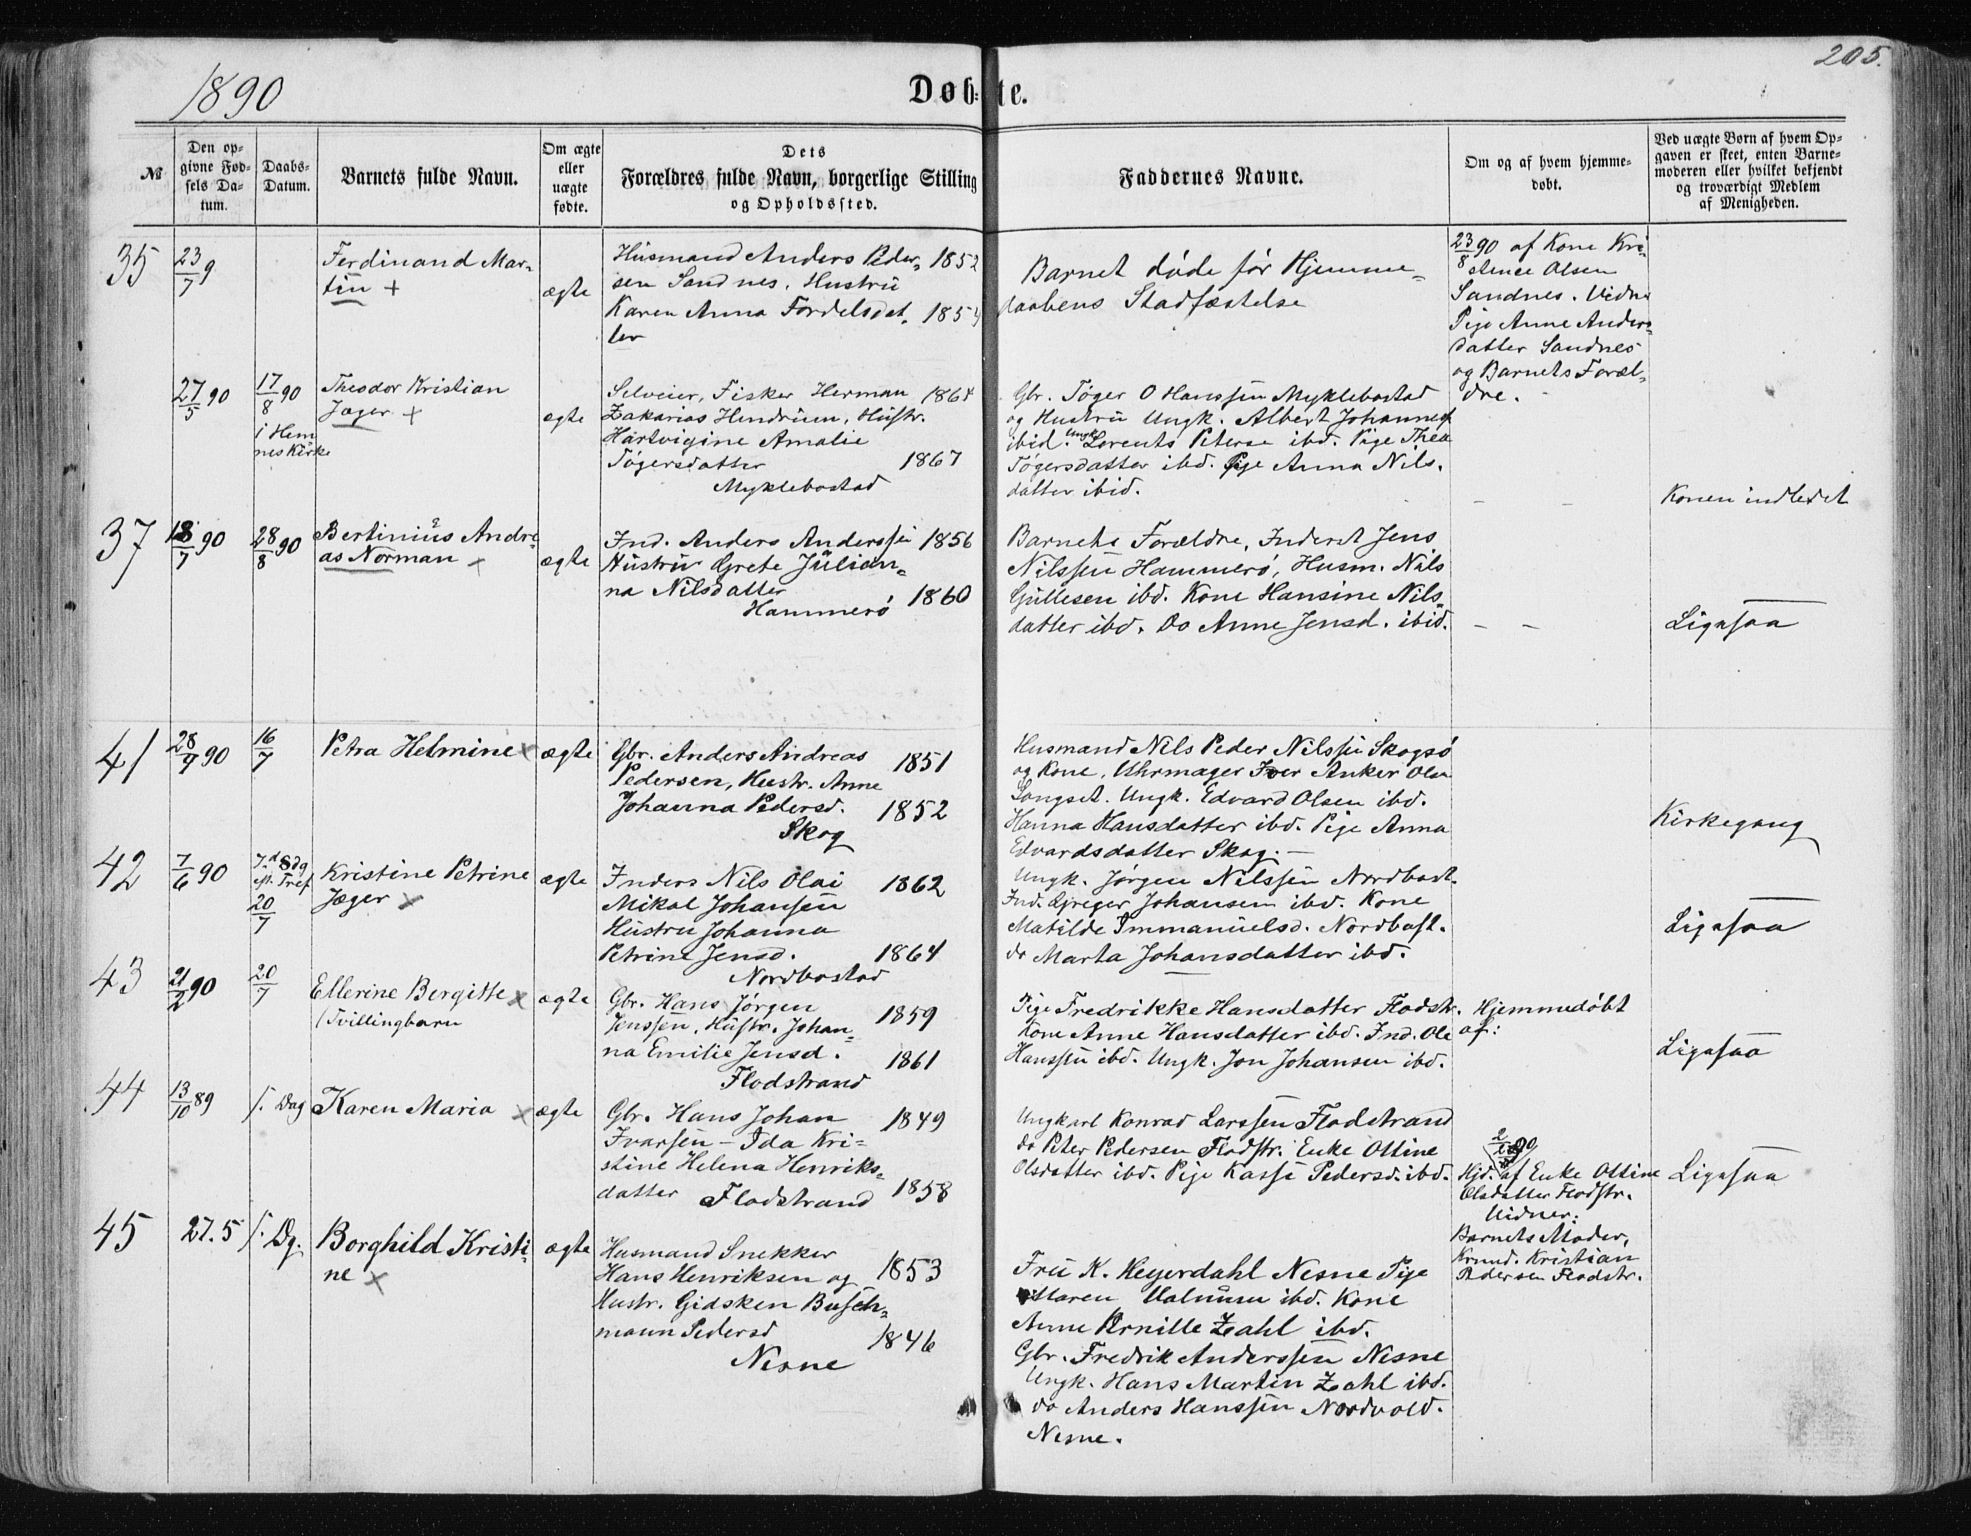 1890
Døbte.
205.
№
Den op-
givne Fød-
sels Da-
tum.
Daabs-
Datum.
Barnets fulde Navn.
Om ægte
eller
uægte
fødte.
Dets
Forældres fulde Navn, borgerlige Stilling
og Opholdssted.
Faddernes Navne.
Om og af hvem hjemme-
døbt.
Ved uægte Børn af hvem Op-
gaven er skeet, enten Barne-
moderen eller hvilket bekjendt
og troværdigt Medlem
af Menigheden.
35
23/7 9
Ferdinand Mar-
tin +
ægte
Husmand Anders Peder- 1852
sen Sandnes. Hustru
Karen Anna Fordelsdat- 1854
ter
Barnet døde før Hjemme-
daabens Stadfæstelse
23/8 90 af Kone Kri-
stence Olsen
Sandnes. Vidne
Pige Anne Anders-
datter Sandnes
og Barnets Foræl-
dre.
27/5 90
17/8 90
i Hem
nes Kirke
Theodor Kristian
Jæger +
ægte
Selveier, Fisker Herman 1864
Zakarias Hendriksen, Hustr.
Hartvigine Amalie
Tøgersdatter 1867
Myklebostad
Gbr. Tøger O Hanssen Myklebostad
og Hustru Ungk. Albert Johannes
ibid. Ungk Lorents Peterse ibd. Pige Thea
Tøgersdatter ibd. Pige Anna Nils-
datter ibid.
Konen indledet
37
18/7 90
28/8 90
Bertinius Andre-
as Norman x
ægte
Ind. Anders Anderssen 1856
Hustru Grete Julian-
na Nilsdatter 1860
Hammerø
Barnets Forældre, Inderst Jens
Nilssen Hammerø, Husm. Nils
Gullesen ibd. Kone Hansine Nils-
datter ibd. Do Anne Jensd. ibid.
Ligesaa
41
28/4 90
16/7
Petra Helmine x
ægte
Gbr. Anders Andreas 1851
Pedersen, Hustr. Anne
Johanna Pedersd. 1852
Skog
Husmand Nils Peder Nilssen Skogsø
og Kone, Uhrmager Iver Anker Olsen
Langset. Ungk. Edvard Olsen ibd.
Hanna Hansdatter ibd. Pige Anna
Edvardsdatter Skog. —
Kirkegang
42
7/6 90
7.d Sdg
ep. Tref
20/7
Kristine Petrine
Jæger x
ægte
Inders Nils Olai 1862
Mikal Johansen
Hustru Johanna
Petrine Jensd. 1864
Nordbostad
Ungk. Jørgen Nilssen Nordbost.
Ind. Greger Johansen ibd. Kone
Matilde Immanuelsd. Nordbost.
do Marta Johansdatter ibd.
Ligesaa
43
21/2 90
20/7
Ellerine Bergitte x
/Tvillingbarn
ægte
Gbr. Hans Jørgen 1859
Jenssen, Hustr. Johan-
na Emilie Jensd. 1861
Flodstrand
Pige Fredrikke Hansdatter Flodstr.
Kone Anne Hansdatter ibd. Ind. Ole
Hanssen ibd. Ungk. Jon Johansen ibd.
Hjemmedøbt
af:
Ligesaa
44
13/10 89
s. Dag
Karen Maria x
ægte
Gbr. Hans Johan 1849
Ivarsen — Ida Kri-
stine Helena Henriks-
datter Flodstrand 1858
Ungkarl Konrad Larssen Flodstrand
do Peter Pedersen Flodstr. Enke Ottine
Olsdatter ibd. Pige Kasse Pedersd. ibd.
Hjd. af Enke Ottine
Olsdatter Flodstr.
Vidner:
Barnets Moder,
Krmd. Kristian
Pedersen Flodstr.
Ligesaa
45
27.5
s. Dg.
Borghild Kristi-
ne x
ægte
Husmand Snekker
Hans Henriksen og 1853
Hustr. Gidsken Busch-
mann Pedersd 1846
Nesne
Fru K. Heyerdahl Nesne Pige
Maren Valnum ibd. Kone
Anne Pernille Zahl ibd.
Gbr. Fredrik Anderssen Nesne
Ungk. Hans Martin Zahl ibd.
do Anders Hanssen Nordvold.
Nesne.